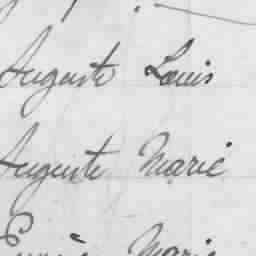 Auguste Louis
Auguste Marie
Marie